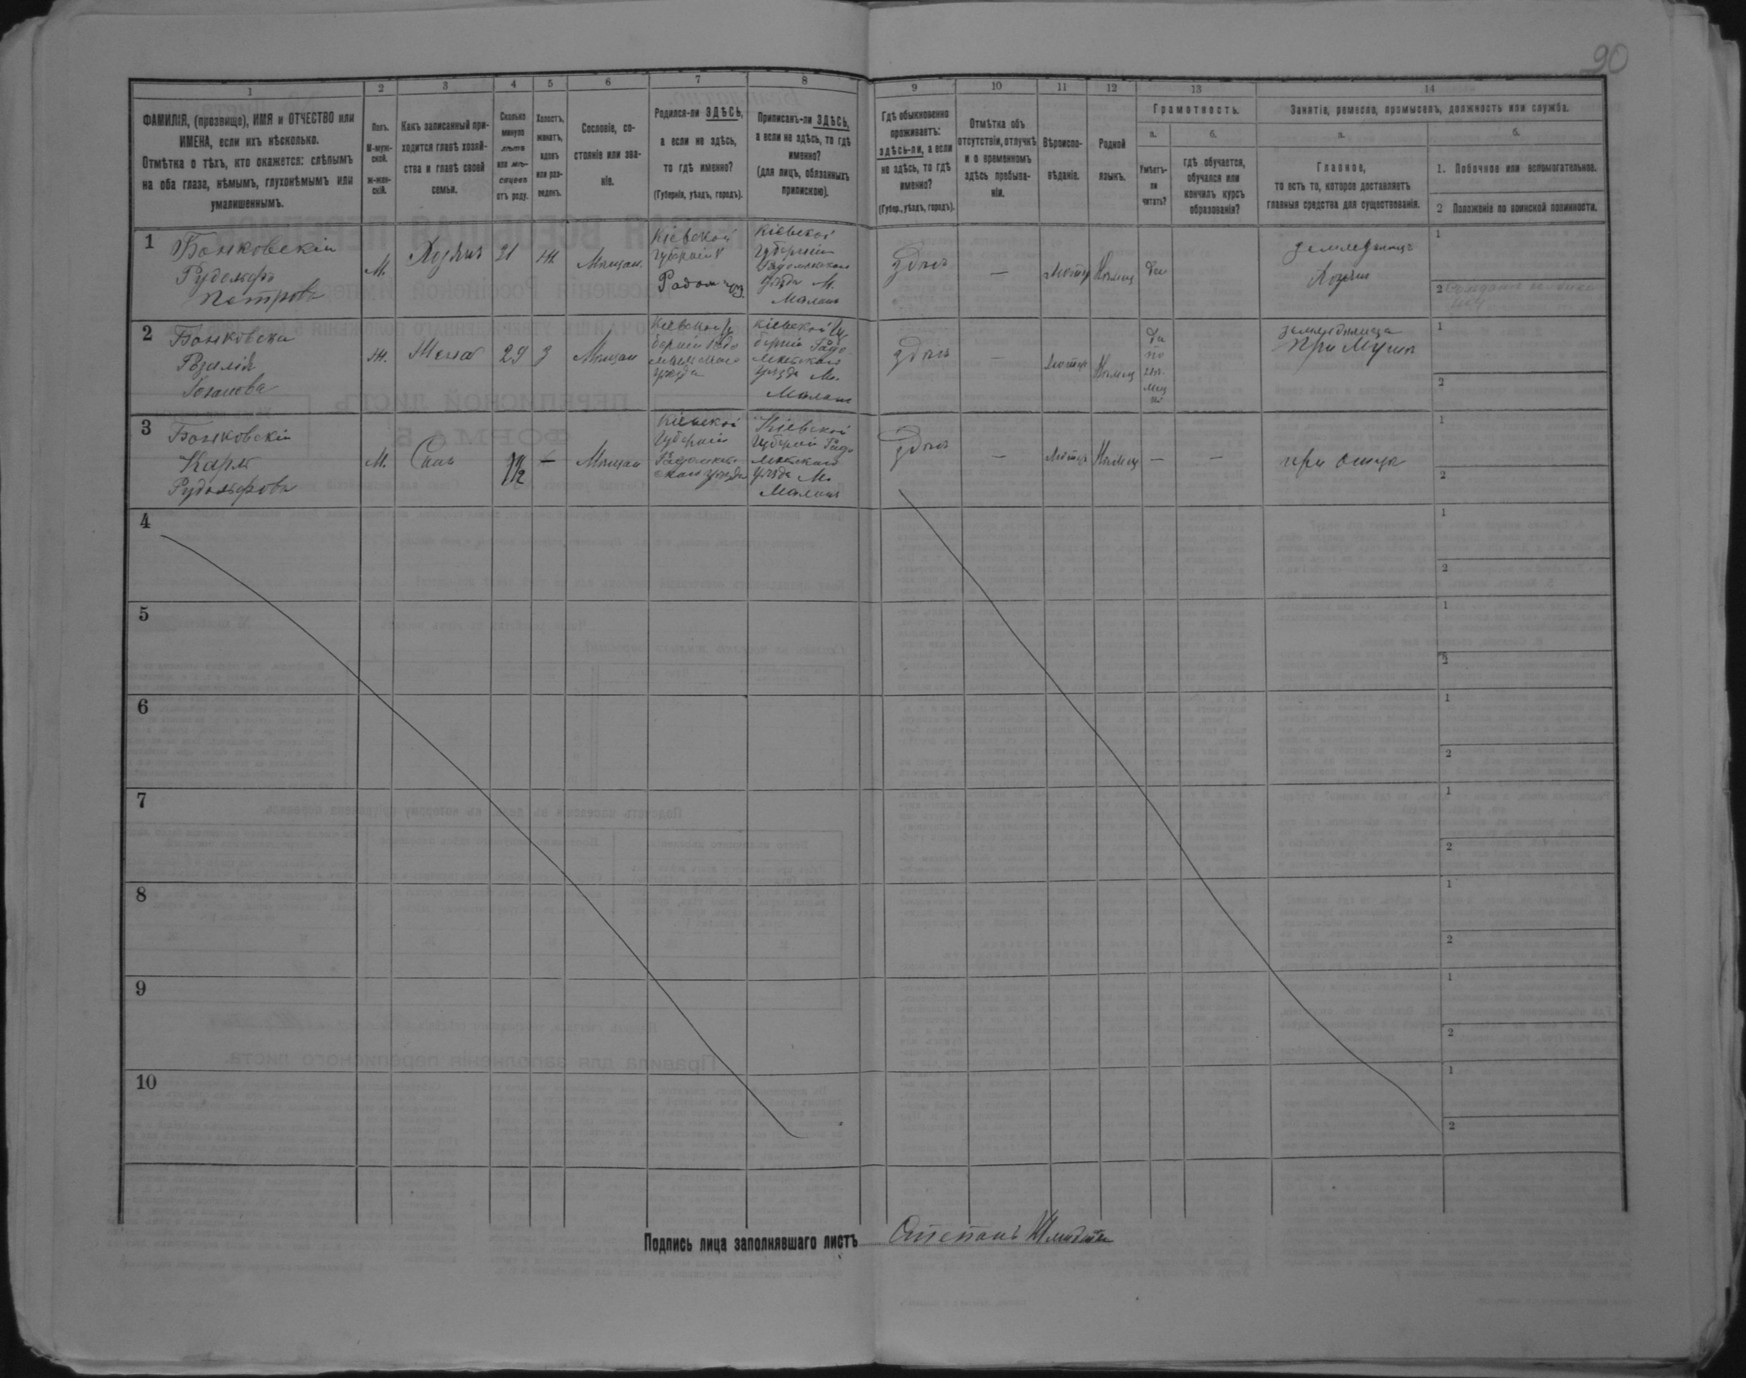 90
1 2 3 4 5 6 7 8 9 10 11 12 13 14
ФАМИЛІЯ, (прозвище), ИМЯ и ОТЧЕСТВО или
ИМЕНА, если ихъ нѣсколько.
Отмѣтка о тѣхъ, кто окажется: слѣпымъ
на оба глаза, нѣмымъ, глухонѣмымъ или
умалишеннымъ.
Полъ.
М-муж-
ской.
Ж-жен-
скій.
Какъ записанный при-
ходится главѣ хозяй-
ства и главѣ своей
семьи.
Сколько
минуло
лѣтъ
или мѣ-
сяцевъ
отъ роду.
Холостъ,
женатъ,
вдовъ
или раз-
веденъ.
Сословіе, со-
стояніе или зва-
ніе.
Родился-ли ЗДѢСЬ,
а если не здѣсь,
то гдѣ именно?
(Губернія, уѣздъ, городъ).
Приписанъ-ли ЗДѢСЬ,
а если не здѣсь, то гдѣ
именно?
(для лицъ, обязанныхъ
припискою).
Гдѣ обыкновенно
проживаетъ:
здѣсь-ли, а если
не здѣсь, то гдѣ
именно?
(Губер., уѣздъ, городъ).
Отмѣтка объ
отсутствіи, отлучкѣ
и о временномъ
здѣсь пребыва-
ніи.
Вѣроиспо-
вѣданіе.
Родной
языкъ.
Грамотность.
а.
Умѣетъ-
ли
читать?
б.
гдѣ обучается,
обучался или
кончилъ курсъ
образованія?
Занятіе, ремесло, промыселъ, должность или служба.
а.
Главное,
то есть то, которое доставляетъ
главныя средства для существованія.
б.
1. Побочное или вспомогательное.
2 Положеніе по воинской повинности.
1
Бонковскій
Рудольфъ
Петровъ
М.
Хозяинъ
Ж.
Мѣщан.
Кіевской
губерніи
Радом. уѣз.
Кіевской
Губерніи
Радомысльск
уѣзда М.
Малинъ
здѣсь
—
Лютер
Немец
да
земледѣлецъ
Хозяинъ
1
2
2
Бонковска
Розалія
М.
Жена
З
Мѣщан
Кіевской Гу
берніи Радо
мысльскаго
уѣзда
Кіевской Гу
берніи Радо
мысльскаго
уѣзда М.
Малинъ
здѣсь
—
Лютер
Немец
да
по
земледѣлица
при мужѣ
1
2
3
Бонковскій
Карлъ
Рудольфовъ
М.
Сынъ
—
Мѣщан
Кіевской
Губерніи
Радомысль-
скаго уѣзда
Кіевской
Губерніи Радо
мысльскаго
уѣзда М.
Малинъ
здѣсь
—
Лютер
Немец
—
—
при отцѣ
1
2
4
1
2
5
1
2
6
1
2
7
1
2
8
1
2
9
1
2
10
1
2
Подпись лица заполнявшаго листъ
Степанъ